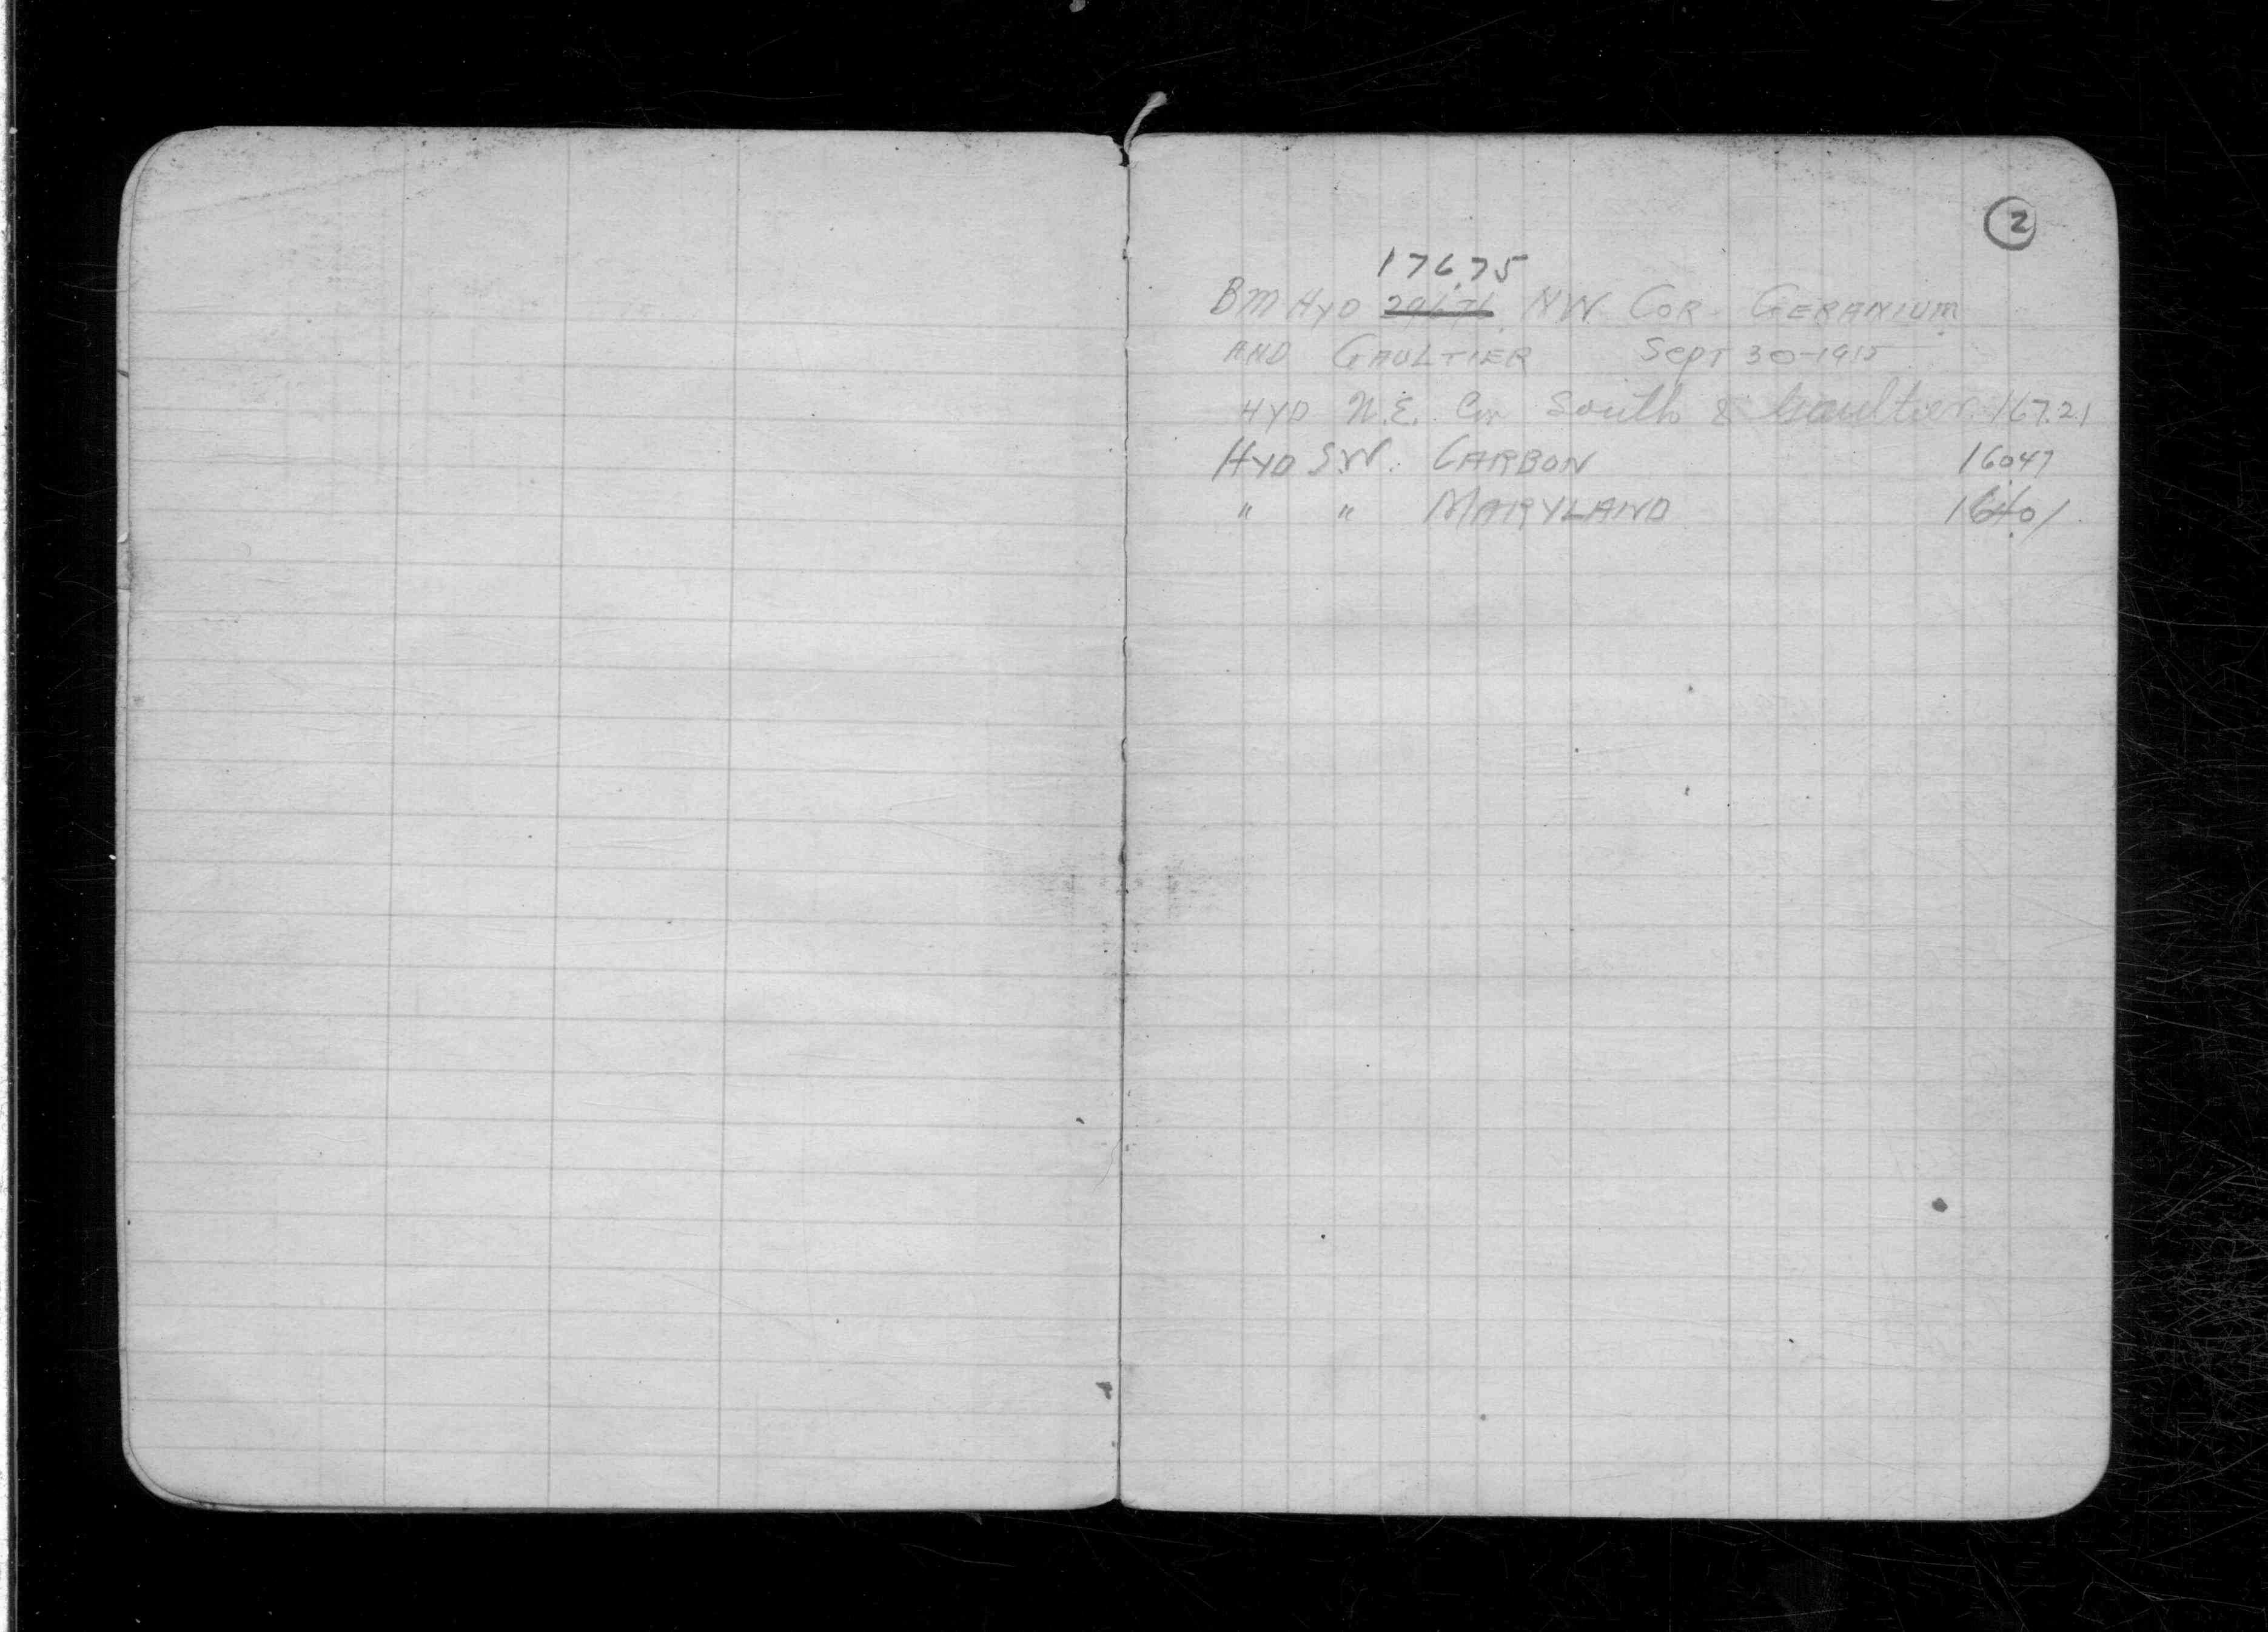 2
176.75
BM HYD NW. COR. GERANIUM
AND GAULTIER Sept 30-1915
HYD N.E. Cor South & Gaultier 167.21
HYD S.W. CARBON 160.47
" " MARYLAND